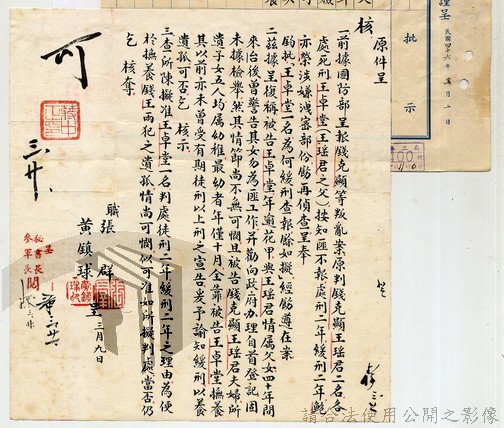 原件呈
核
一前據國防部呈報錢克顯等叛亂案原判錢克顯王瑤君二名各
處死刑王卓堂(王瑤君之父)按知匪不報處刑二年緩刑二年鮑
亦榮涉嫌洩密部份飭再偵查呈奉
鈞批王卓堂一名為何緩刑查報餘如擬經飭遵在案
二茲據呈復稱被告王卓堂年逾花甲與王瑤君情屬父女四十年間
來治後曾警告其女勿為匪工作並勸向政府辦理自首登記因
未據檢舉然其情節尚不無可憫且被告錢克顯王瑤君夫婦所
遺子女五人均屬幼稚最幼者年僅十月全靠被告王卓堂撫養
其以前亦未曾受有期徒刑以上刑之宣告爰予諭知緩刑以養
遺孤可否乞 核示
三查所陳擬准王卓堂一名判處徒刑二年緩刑二年之理由為便
於撫養錢王兩犯之遺孤情尚可憫似可准如所擬判處當否仍
乞 核奪
職張羣
黃鎮球
呈 三月九日
可
三、廿、
秘書長
參軍長
閱
批
示
謹呈
民國四十六年 月 二 日
請合法使用公開之影像